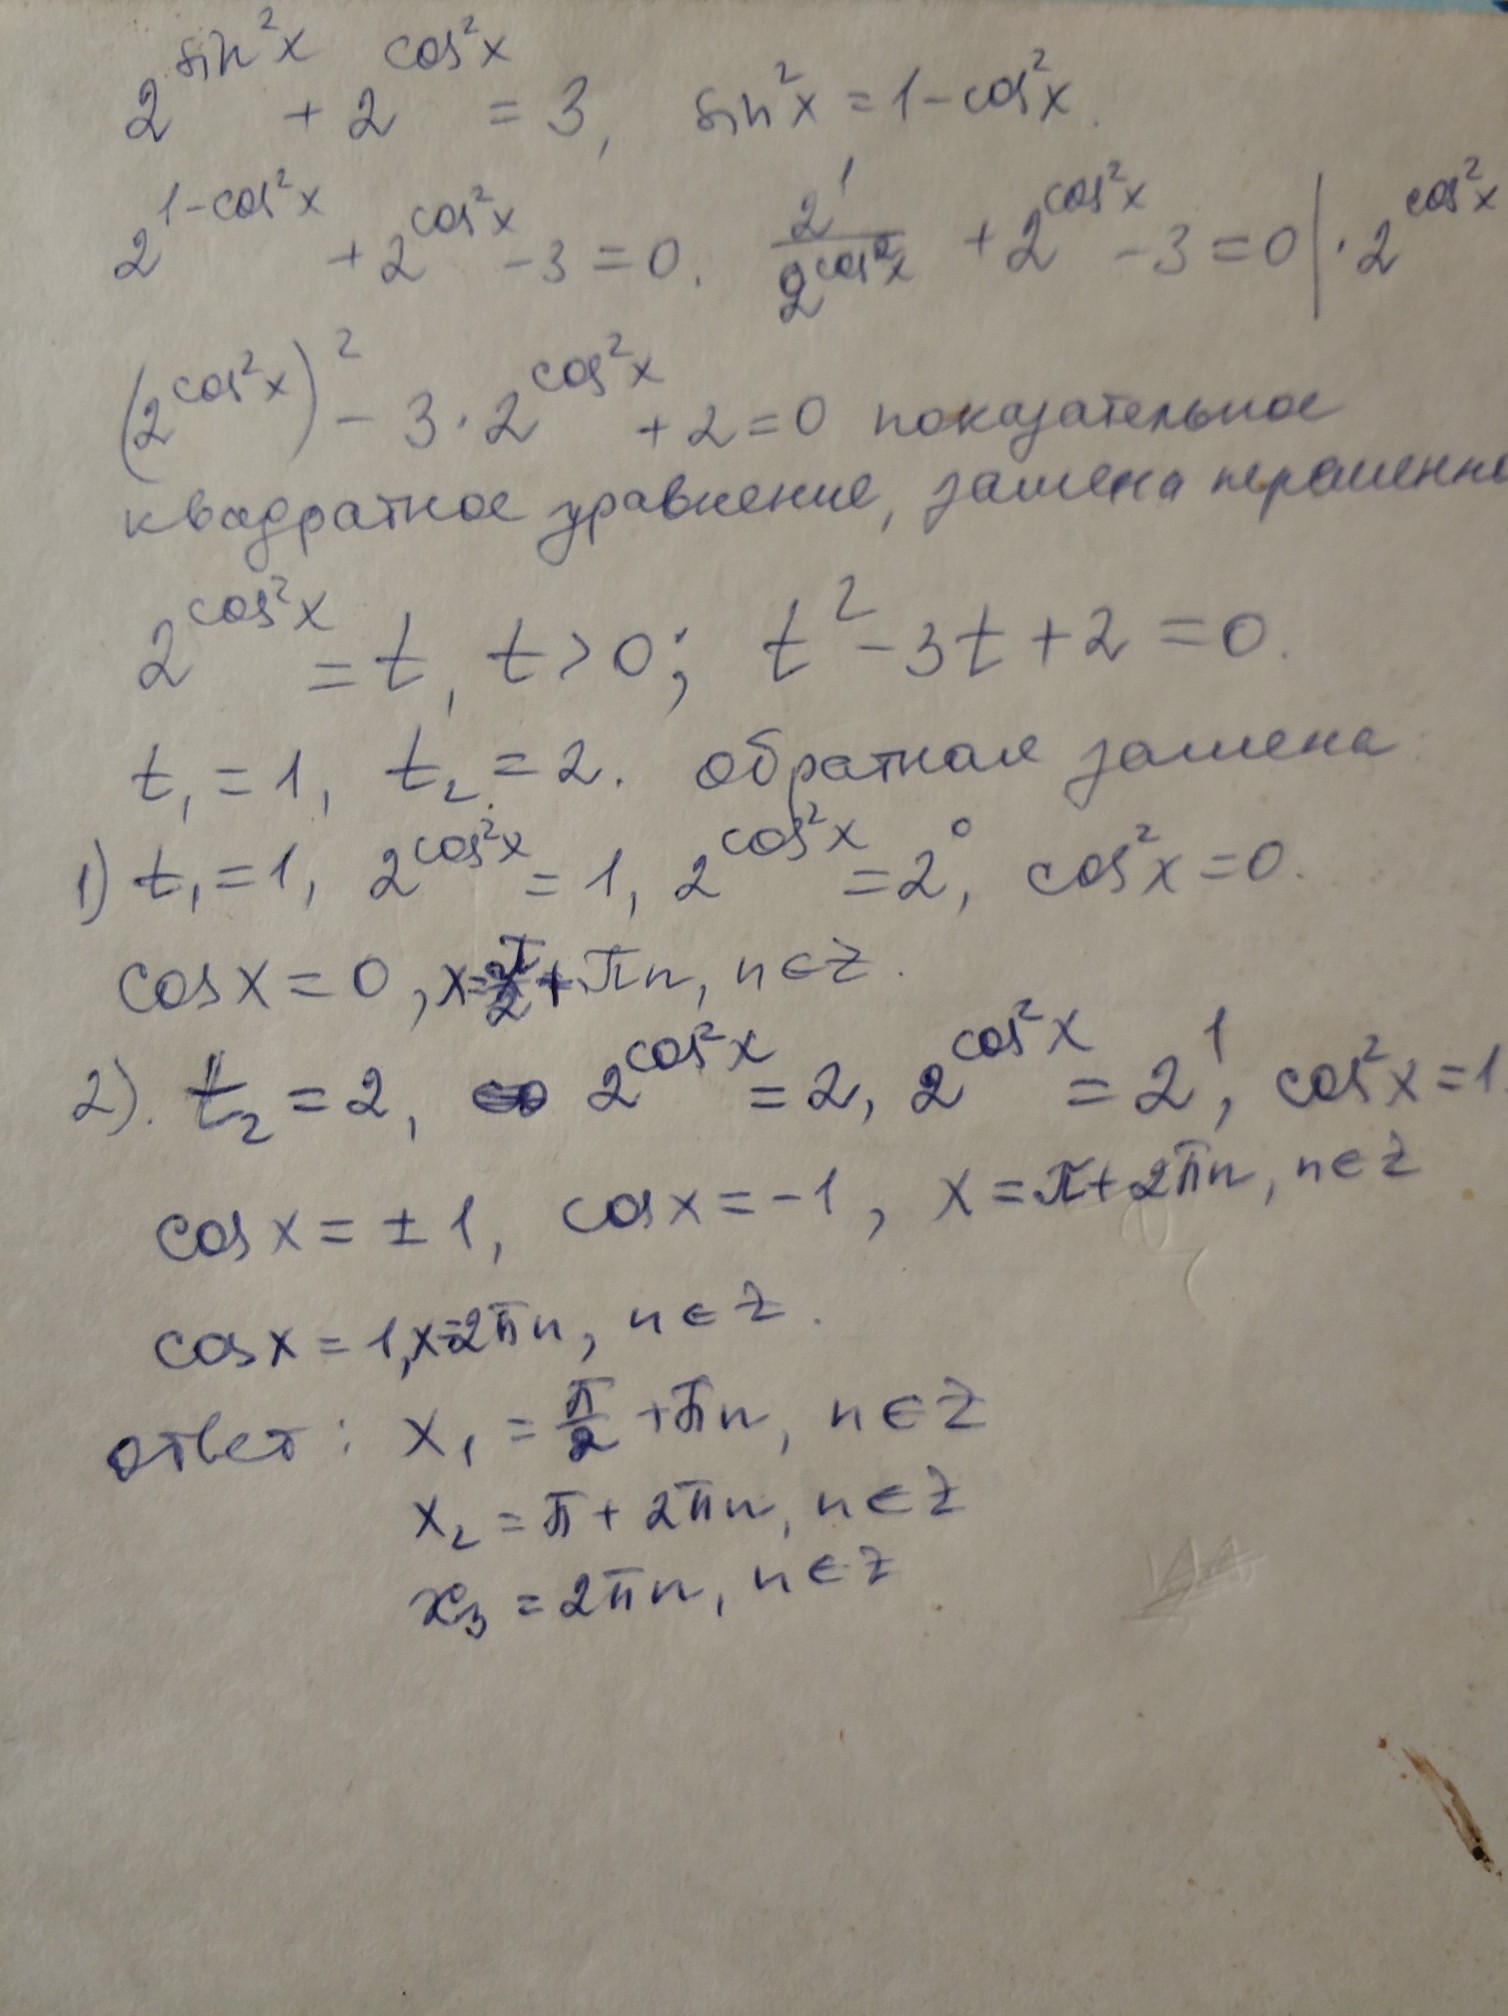 2^(sin²x) + 2^(cos²x) = 3, sin²x = 1 - cos²x.
2^(1-cos²x) + 2^(cos²x) - 3 = 0. 2¹/2^(cos²x) + 2^(cos²x) - 3 = 0 | · 2^(cos²x)
(2^(cos²x))² - 3 · 2^(cos²x) + 2 = 0 показательное
квадратное уравнение, замена
2^(cos²x) = t, t > 0; t² - 3t + 2 = 0.
t₁ = 1, t₂ = 2. обратная замена
1) t₁ = 1, 2^(cos²x) = 1, 2^(cos²x) = 2⁰, cos²x = 0.
cos x = 0, x = π/2 + πn, n ∈ Z.
2). t₂ = 2, 2^(cos²x) = 2, 2^(cos²x) = 2¹, cos²x = 1
cos x = ± 1, cos x = -1, x = π + 2πn, n ∈ Z
cos x = 1, x = 2πn, n ∈ Z.
ответ: x₁ = π/2 + πn, n ∈ Z
x₂ = π + 2πn, n ∈ Z
x₃ = 2πn, n ∈ Z